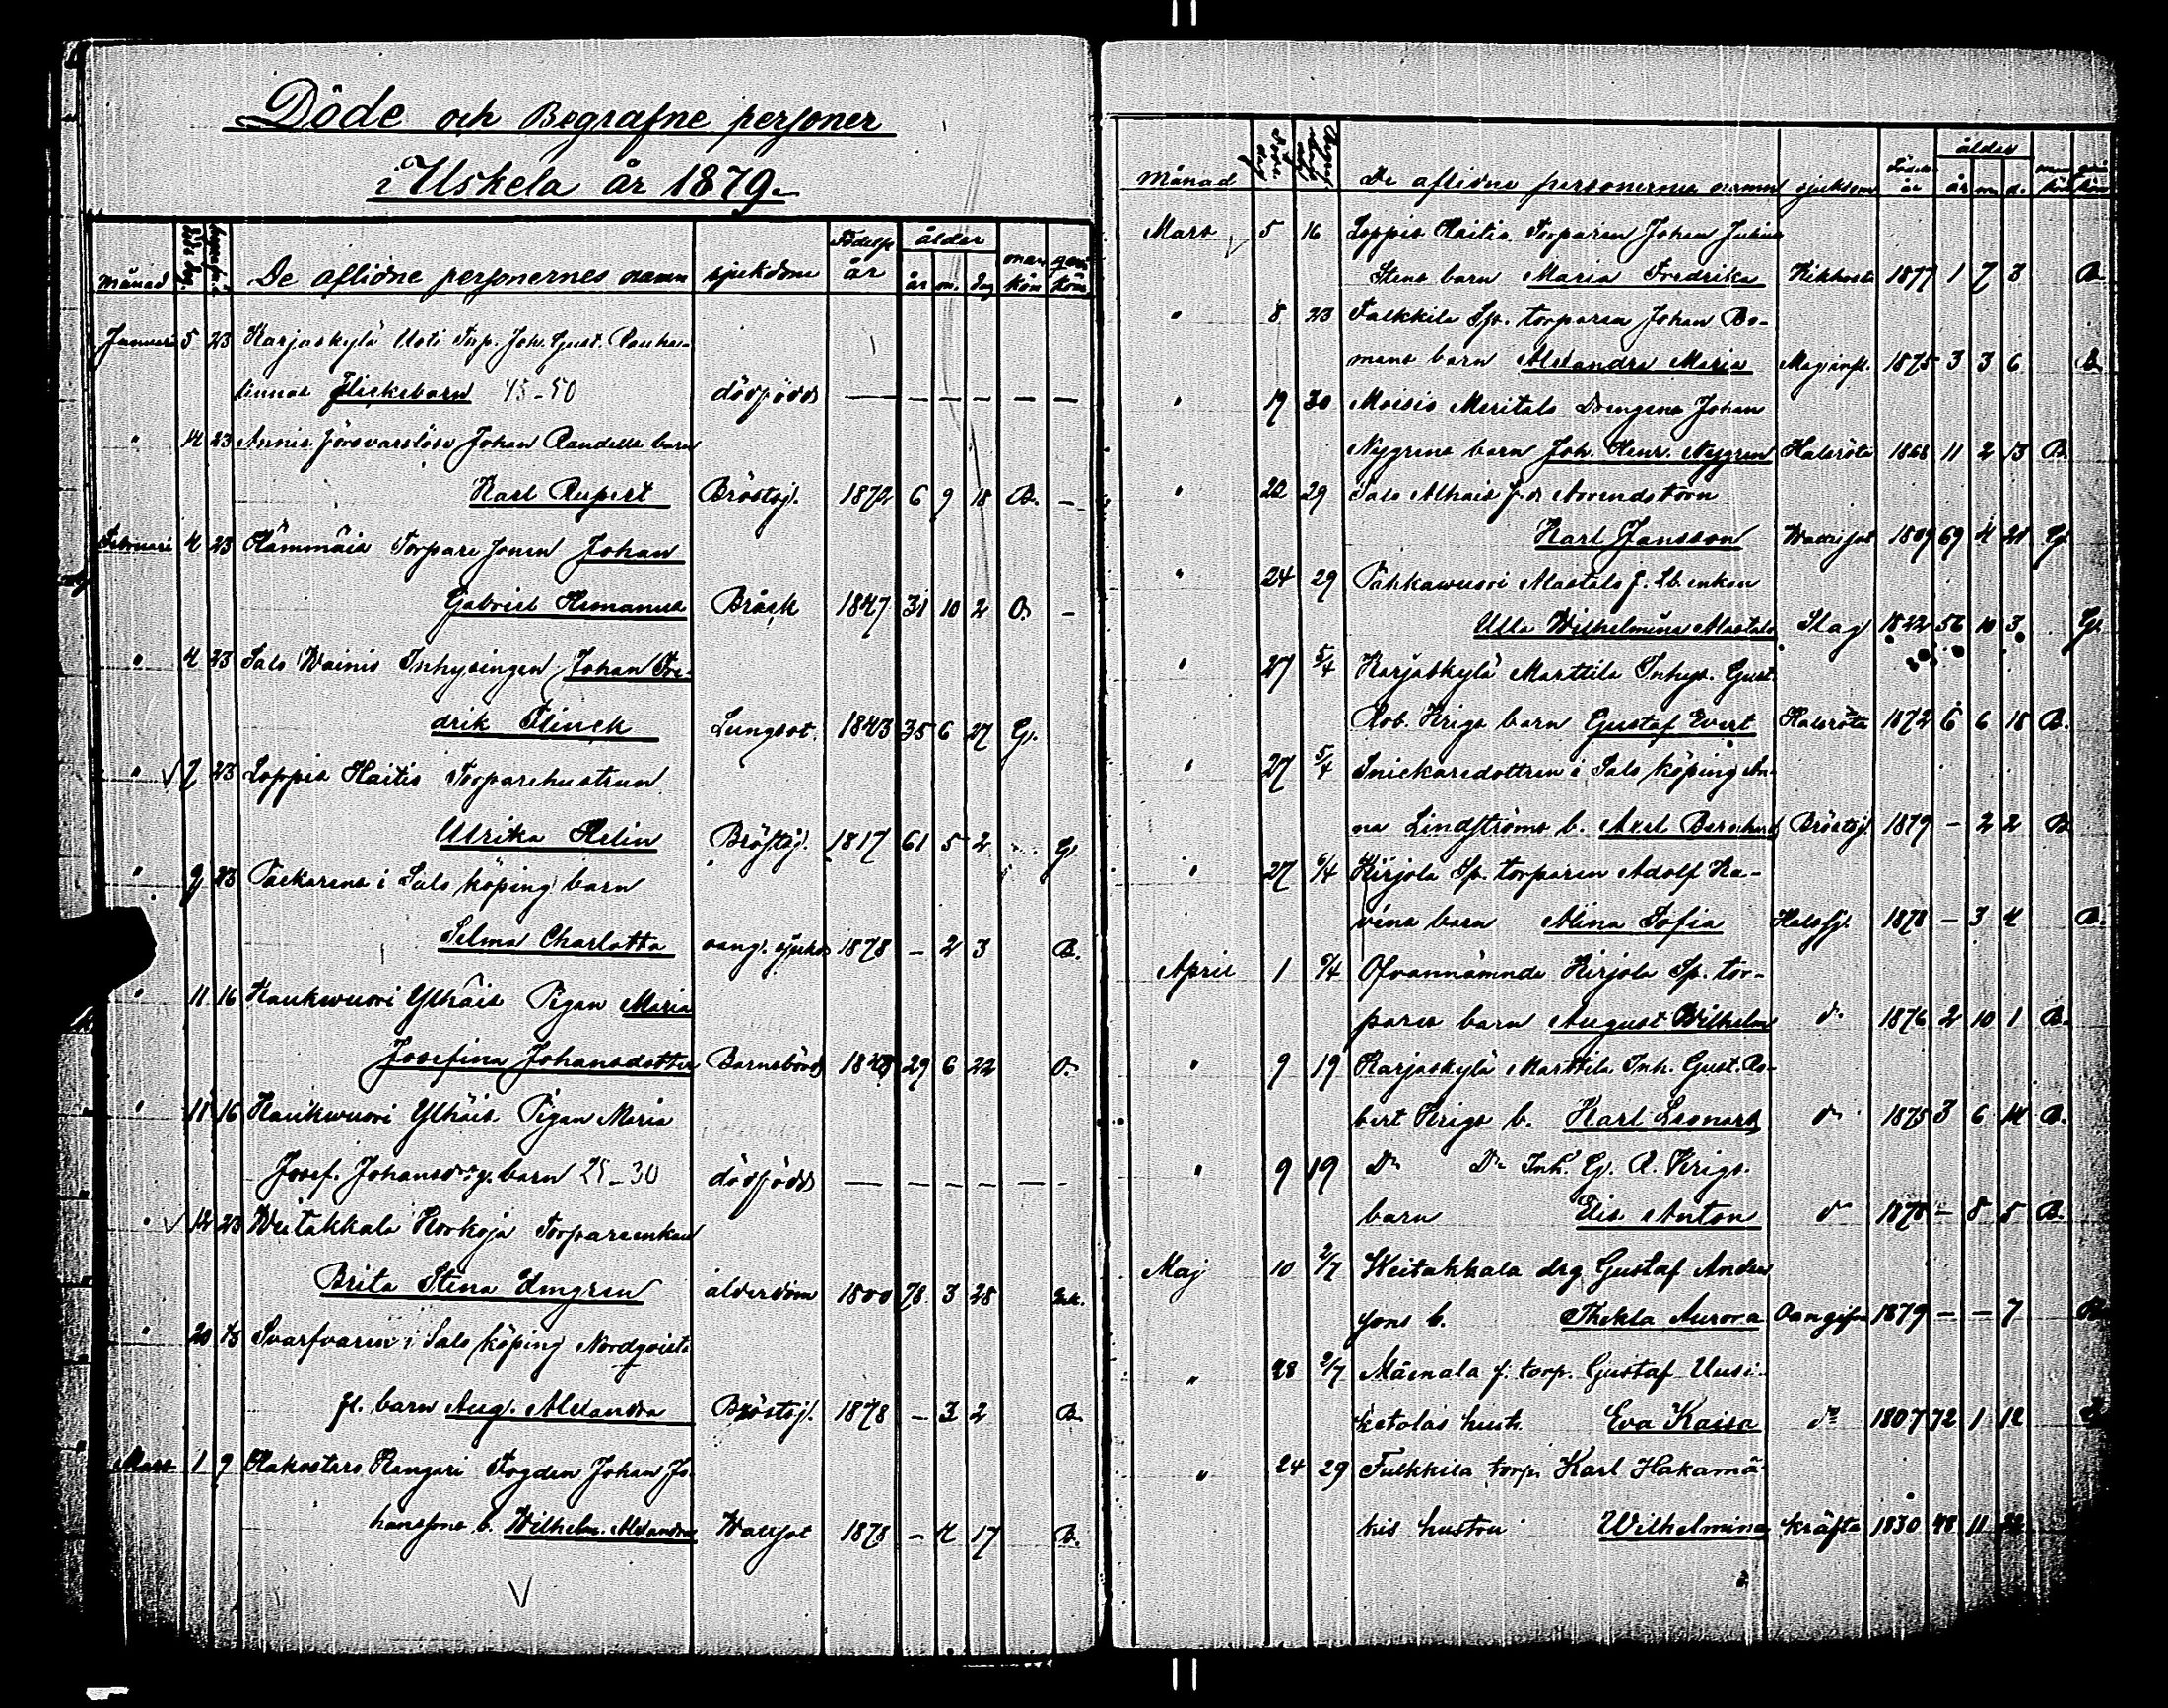 Döde och Begrafne personer
i Uskela år 1879.
Månad döde dag begrafn. d. De aflidne personernes namn sjukdom Födelse år ålder år m. dag mankön qvinkön
Januari 5 23 Karjaskylä Uoti Torp. Joh. Gust.
linnas flickebarn 45-50 dödfödd — — — — — —
" 14 23 Annis försvarslöse Johan Randells barn
Karl Rupert Bröstsj. 1872 6 9 18 B. -
Februari 4 23 Hämmäis Torpare sonen Johan
Gabriel Hemanus Bråck 1847 31 10 2 O. -
" 4 23 Salo Wainis Inhysingen Johan Fre-
drik Flinck Lungsot. 1843 35 6 27 G.
" 7 23 Loppis Haitis Torparehustrun
Ulrika Helin Bröstsj. 1817 61 5 2 G.
" 9 23 i Salo köping barn
Selma Charlotta oang. sjukd. 1878 - 2 3 B.
" 11 16 Haukwuori Ylhäis Pigan Maria
Josefina Johansdotter Barnsbörd 1849 29 6 22 O.
" 11 16 Haukwuori Ylhäis Pigan Maria
Josef. Johansd:rs g. barn 25-30 dödfödd — — — — — -
" 12 23 Weitakkala Horkoja Torpareenkan
Brita Stina Emgren ålderdom 1800 78 3 28 Enk.
" 20 Svarfvaren i Salo köping Nordqvists
fl. barn Aug. Alexandra Bröstsj. 1878 - 3 2 B.
Mars 1 9 Hakostaro Kangari Fogden Johan Jo-
hanssons b. Wilhelm. Alexandra Wattsot 1878 - 4 17 B.
Månad De aflidne personernes namn sjukdom Födelse år ålder år m. d. mankön qvinkön
Mars 5 16 Loppis Haitis Torparen Johan Julius
Stens barn Maria Fredrika Kikhosta 1877 1 7 3 B.
" 8 23 Falkkila Sp. torparen Johan Bo-
mans barn Alexandra Maria Mag.infl. 1875 3 3 6 B
" 19 30 Moisio Meritalo Drengens Johan
Nygrens barn Joh. Henr. Nygren Halsröta 1868 11 2 13 B.
" 22 29 Salo Alhais f.d. Arrendatorn
Karl Jansson Wattusot 1809 69 4 21 G.
" 24 29 Tahkawuori Alastalo f. Lb. enkan
Ulla Wilhelmina Alastalo Slag 1822 56 10 3 G.
" 27 5/4 Karjaskylä Marttila Inhys. Gust.
Rob. Krigs barn Gustaf Evert Halsröta 1872 6 6 18 B.
" 27 5/4 Snickaredottren i Salo köping An-
na Lindströms b. Axel Bernhard Bröstsj. 1879 - 2 2 B
" 27 6/4 Kirjola Sp. torparen Adolf Ha-
vens barn Alina Sofia Halssj. 1878 - 3 4 B.
April 1 6/4 Ofvannämnde Kirjola Sp. tor-
pares barn August Wilhelm d:o 1876 2 10 1 B.
" 9 19 Karjaskylä Marttila Inh. Gust. Ro-
bert Krigs b. Karl Leonard d:o 1875 3 6 14 B.
" 9 19 D:o D:o Inh. G. R. Krigs
barn Elis Anton d:o 1878 - 8 5 B.
Maj 10 2/7 Weitakkala drg Gustaf Anders
sons b. Thekla Aurora Oangifven 1879 - - 7 B
" 28 2/7 Mäenala f. torp. Gustaf Uusi-
ketolas hust. Eva Kaisa d:o 1807 72 1 12
" 24 29 Fulkkila torp. Karl Hakamä-
kis hustru Wilhelmina kräfta 1830 48 11 22